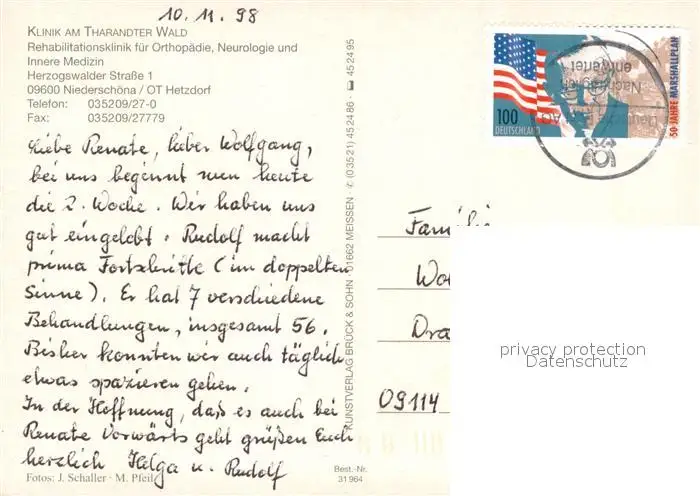 10.11.98
KLINIK AM THARANDTER WALD
Rehabilitationsklinik für Orthopädie, Neurologie und
Innere Medizin
Herzogswalder Straße 1
09600 Niederschöna / OT Hetzdorf
Telefon: 035209/27-0
Fax: 035209/27779
Liebe Renate, lieber Wolfgang,
bei uns beginnt nun heute
die 2. Woche. Wir haben uns
gut eingelebt. Rudolf macht
prima Fortschritte (im doppelten
Sinne). Er hat 7 verschiedene
Behandlungen, insgesamt 56.
Bisher konnten wir auch täglich
etwas spazieren gehen.
In der Hoffnung, daß es auch bei
Renate vorwärts geht grüßen Euch
herzlich Helga u. Rudolf
Fotos: J. Schaller · M. Pfeil
Best.-Nr.
31 964
KUNSTVERLAG BRÜCK & SOHN · 01662 MEISSEN · ✆ (0 35 21) 45 24 86 45 24 95
100
DEUTSCHLAND
50 JAHRE MARSHALLPLAN
Deutsche Post AG
Nachträglich
entwertet
Familie
Wo
Dra
09114
privacy protection
Datenschutz